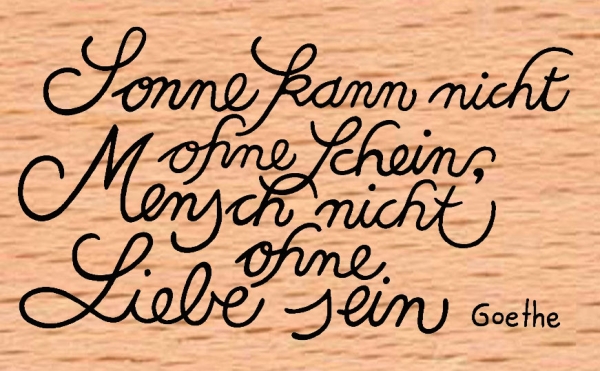 Sonne kann nicht
ohne Schein,
Mensch nicht
ohne
Liebe sein Goethe